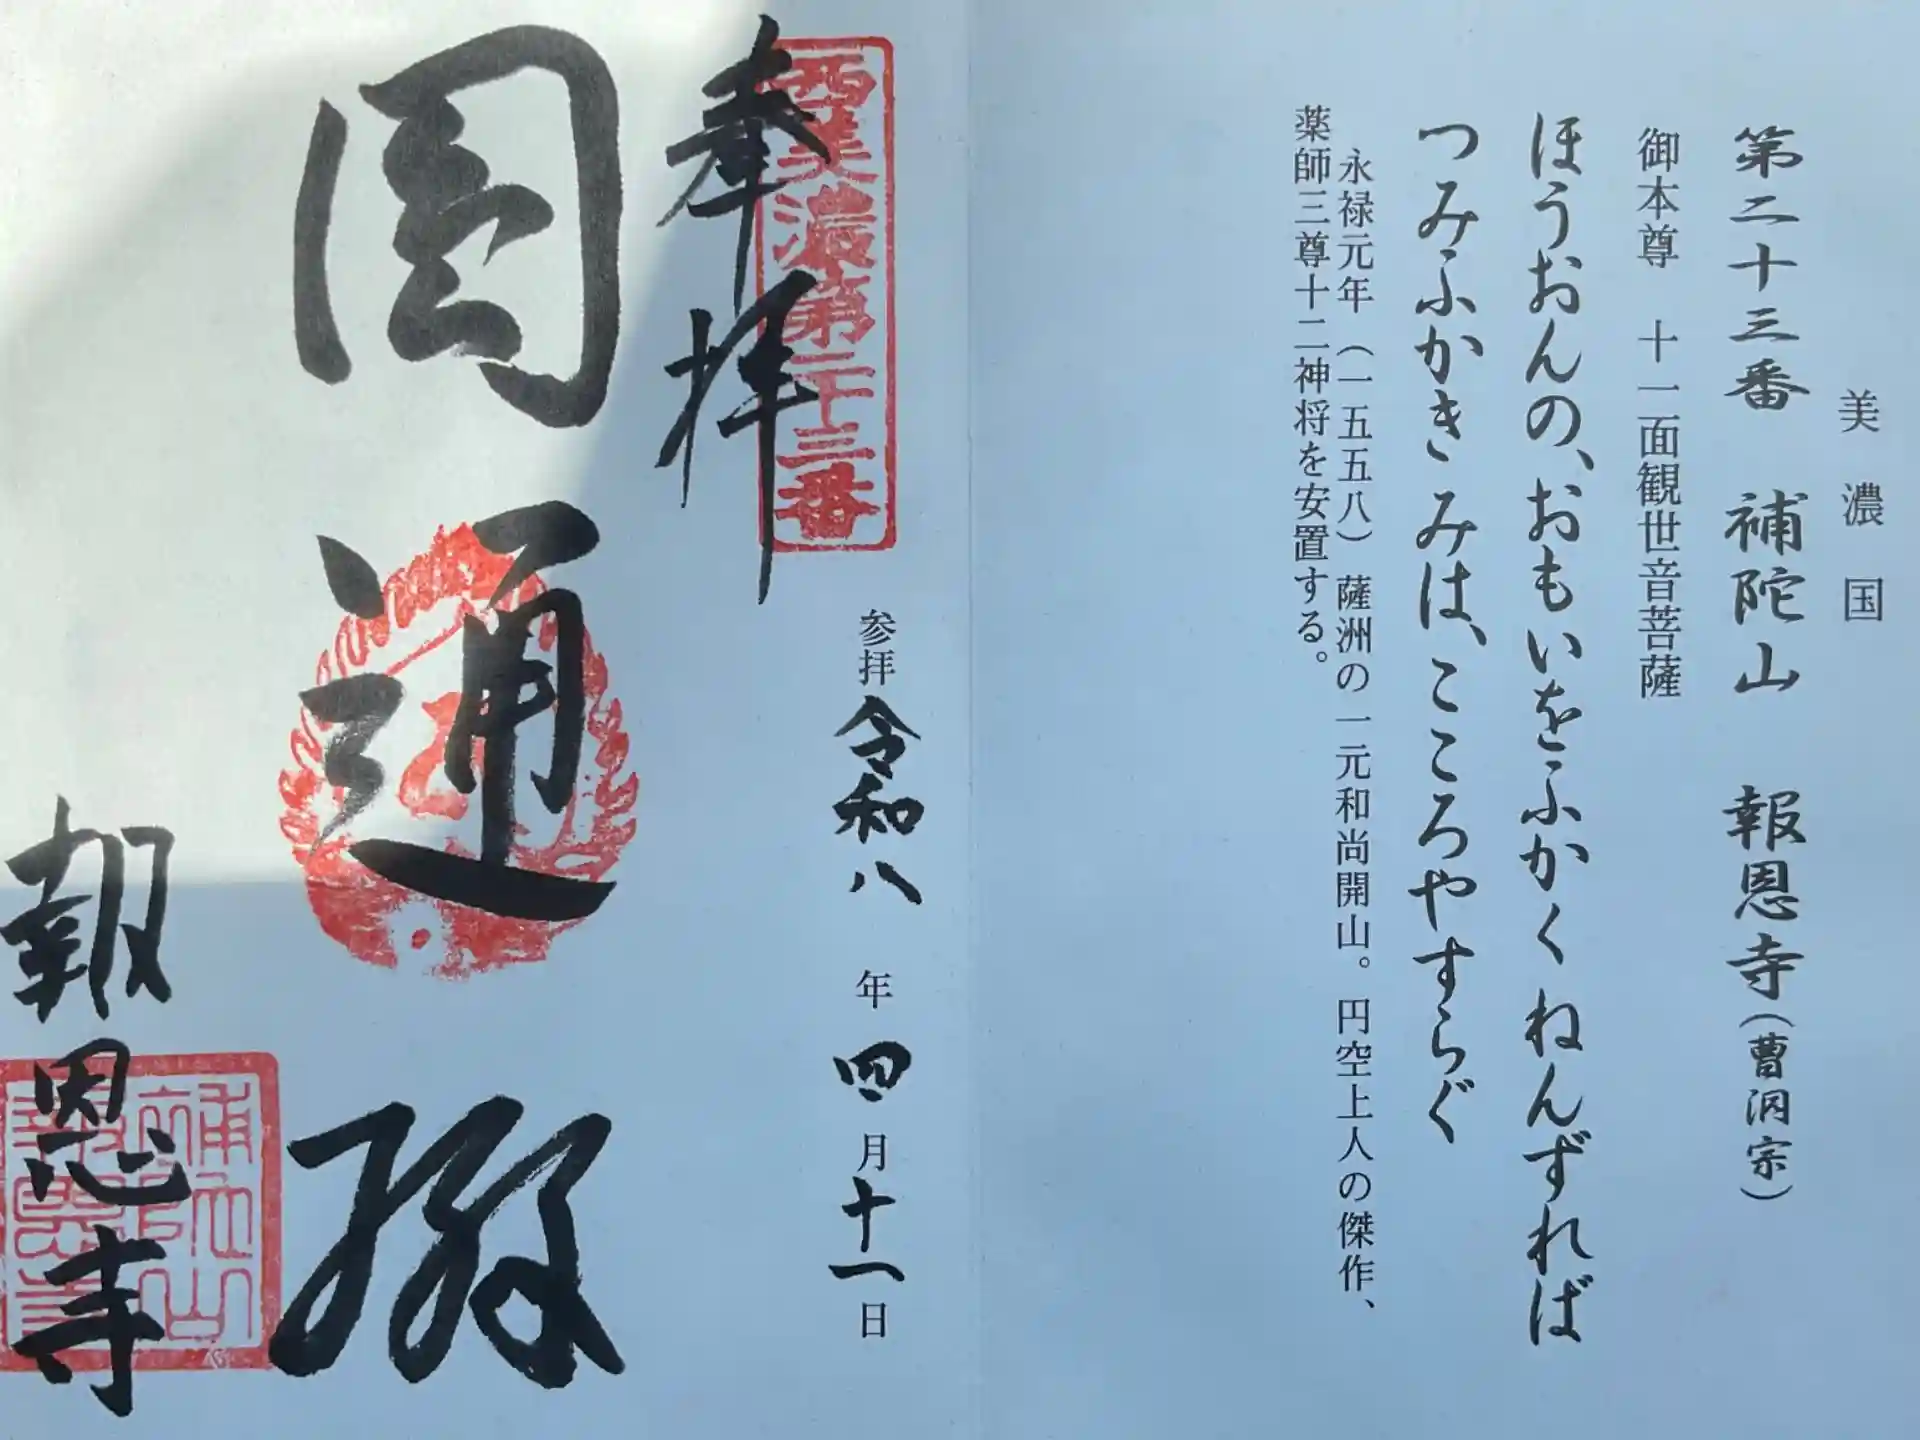 美濃国
第二十三番 補陀山 報恩寺(曹洞宗)
御本尊 十一面観世音菩薩
ほうおんの、おもいをふかくねんずれば
つみふかきみは、こころやすらぐ
永禄元年（一五五八）薩洲の一元和尚開山。円空上人の傑作、
薬師三尊十二神将を安置する。
西美濃第二十三番
奉拝
参拝 令和八年四月十一日
圓通閣
報恩寺